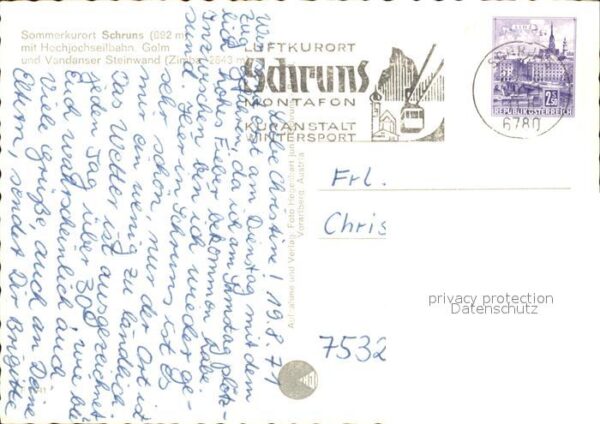 Sommerkurort Schruns (692 m)
mit Hochjochseilbahn. Golm
und Vandanser Steinwand (Zimba 2643 m)
LUFTKURORT
Schruns
MONTAFON
KURANSTALT
WINTERSPORT
SCHRUNS
6780
2.50
REPUBLIK ÖSTERREICH
Liebe Christine! 19.8.71
erst am Dienstag mit dem
Zug da ich am Samstag plötz-
lich hohes Fieber bekommen habe.
Inzwischen bin ich wieder ge-
sund. Hier in Schruns ist es
sehr schön, nur der Ort ist
mir ein wenig zu ländlich.
Das Wetter ist ausgezeichnet
jeden Tag über 30°, wie bei
Euch wahrscheinlich auch.
Viele Grüße, auch an Deine
Eltern, sendet Dir Brigitte
Aufnahme und Verlag: Foto
Vorarlberg, Austria
Frl.
Chris
7532
privacy protection
Datenschutz